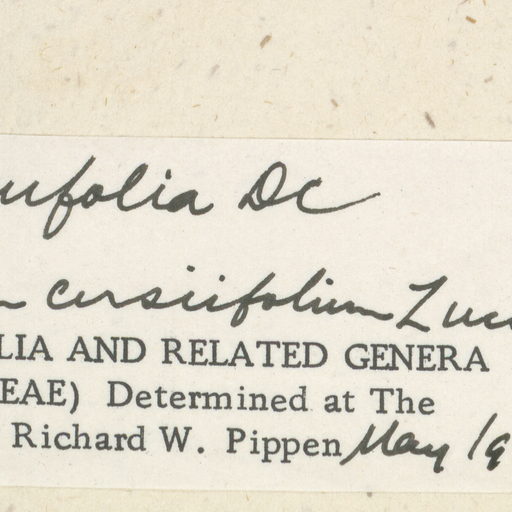 ufolia DC
cirsiifolium Zucc
LIA AND RELATED GENERA
EAE) Determined at The
Richard W. Pippen May 19